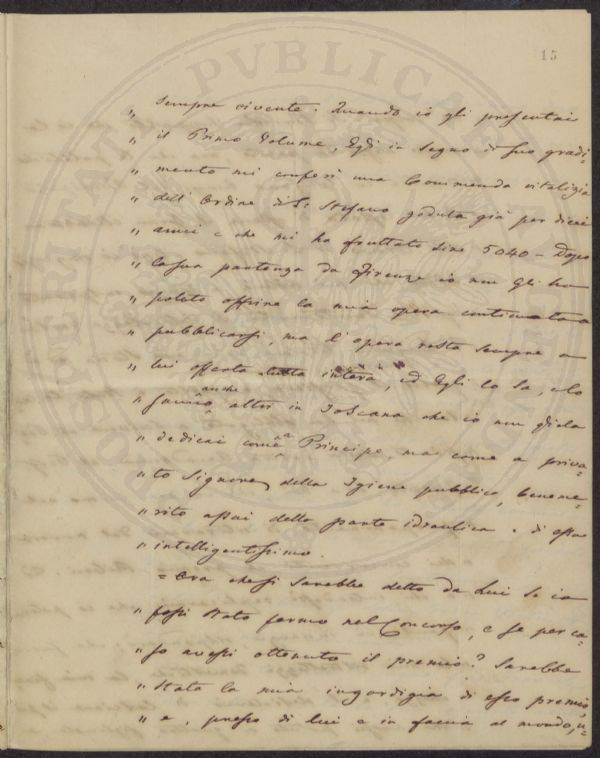 15
„ sempre vivente. Quando io gli presentai
„ il Primo Volume, Egli in segno di suo gradi=
„ mento mi conferì una Commenda vitalizia
„ dell'Ordine di S. Stefano goduta già per dieci
„ anni e che mi ha fruttato Lire 5040 – Dopo
„ la sua partenza da Firenze io non gli ho
„ potuto offrire la mia opera continuata a
„ pubblicarsi, ma l'opera resta sempre a
„ lui offerta tutta intera, ed Egli lo sa, e lo
„ sanno anche altri in Toscana che io non gliela
„ dedicai come a Principe, ma come a priva=
„ to Signore, della Igiene pubblica, beneme=
„ rito assai della parte idraulica di essa
„ intelligentissimo.
= Ora che si sarebbe detto da Lui se io
„ fossi stato fermo nel Concorso, e se per ca=
„ so avessi ottenuto il premio? Sarebbe
„ stata la mia ingordigia di esso premio,
„ e, presso di lui e in faccia al mondo, u=
PVBLICA